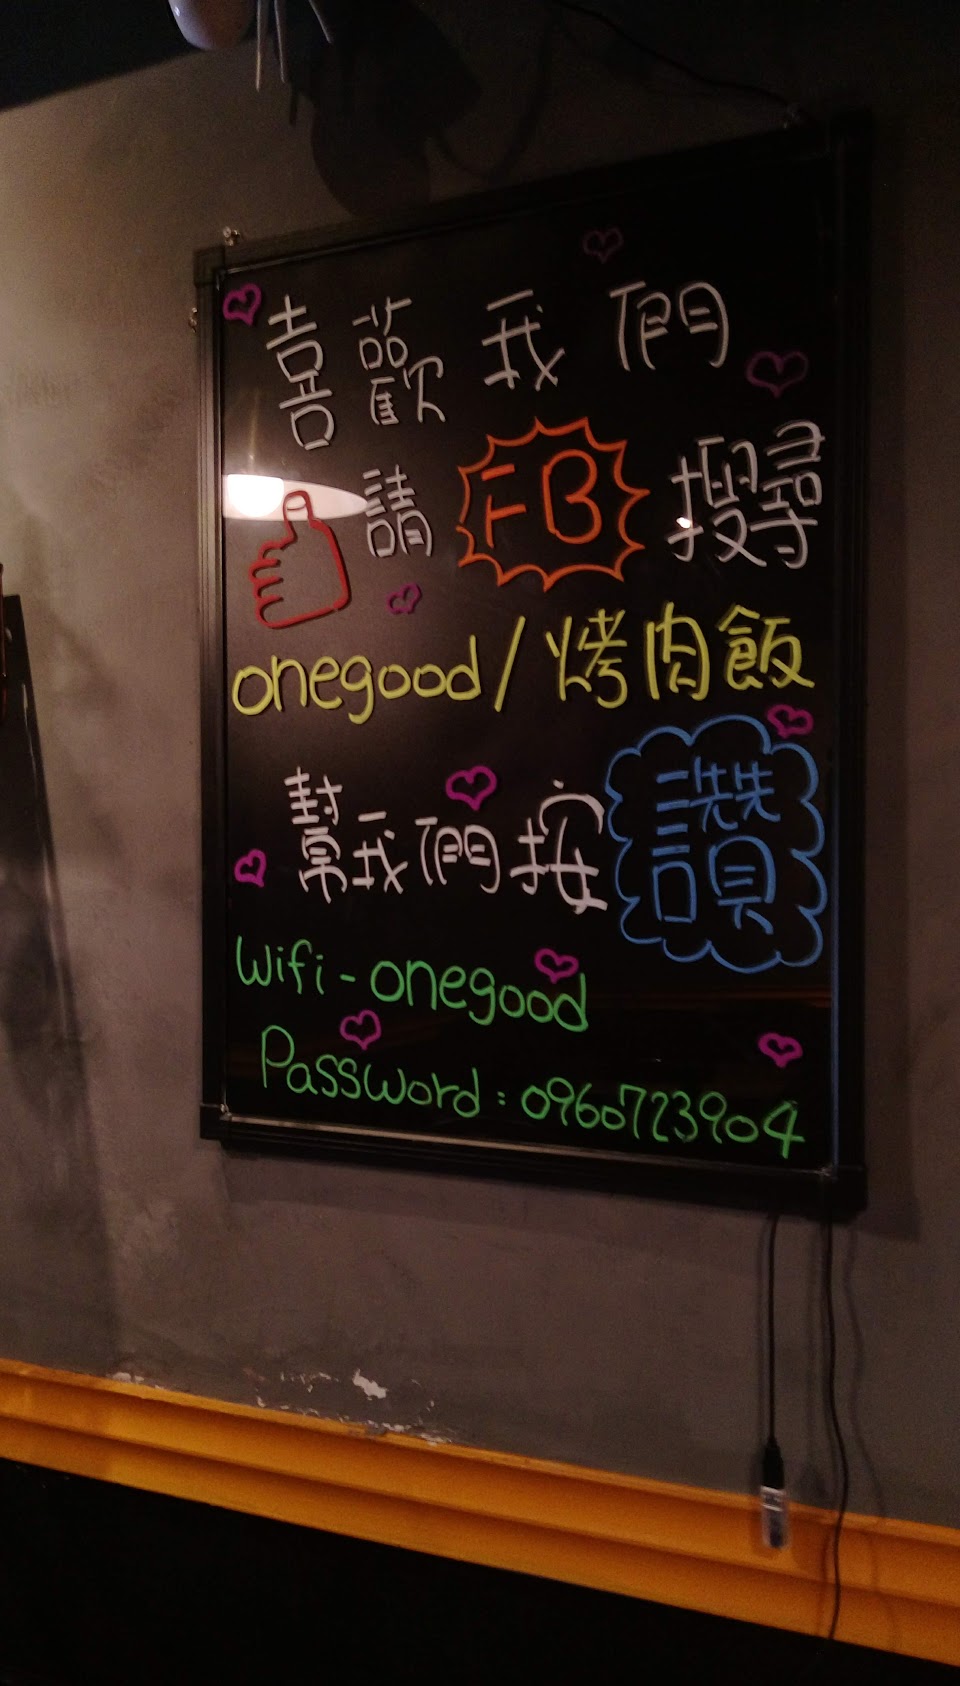 喜歡我們
請 FB 搜尋
onegood/烤肉飯
幫我們按讚
Wifi - onegood
Password : 0960723904